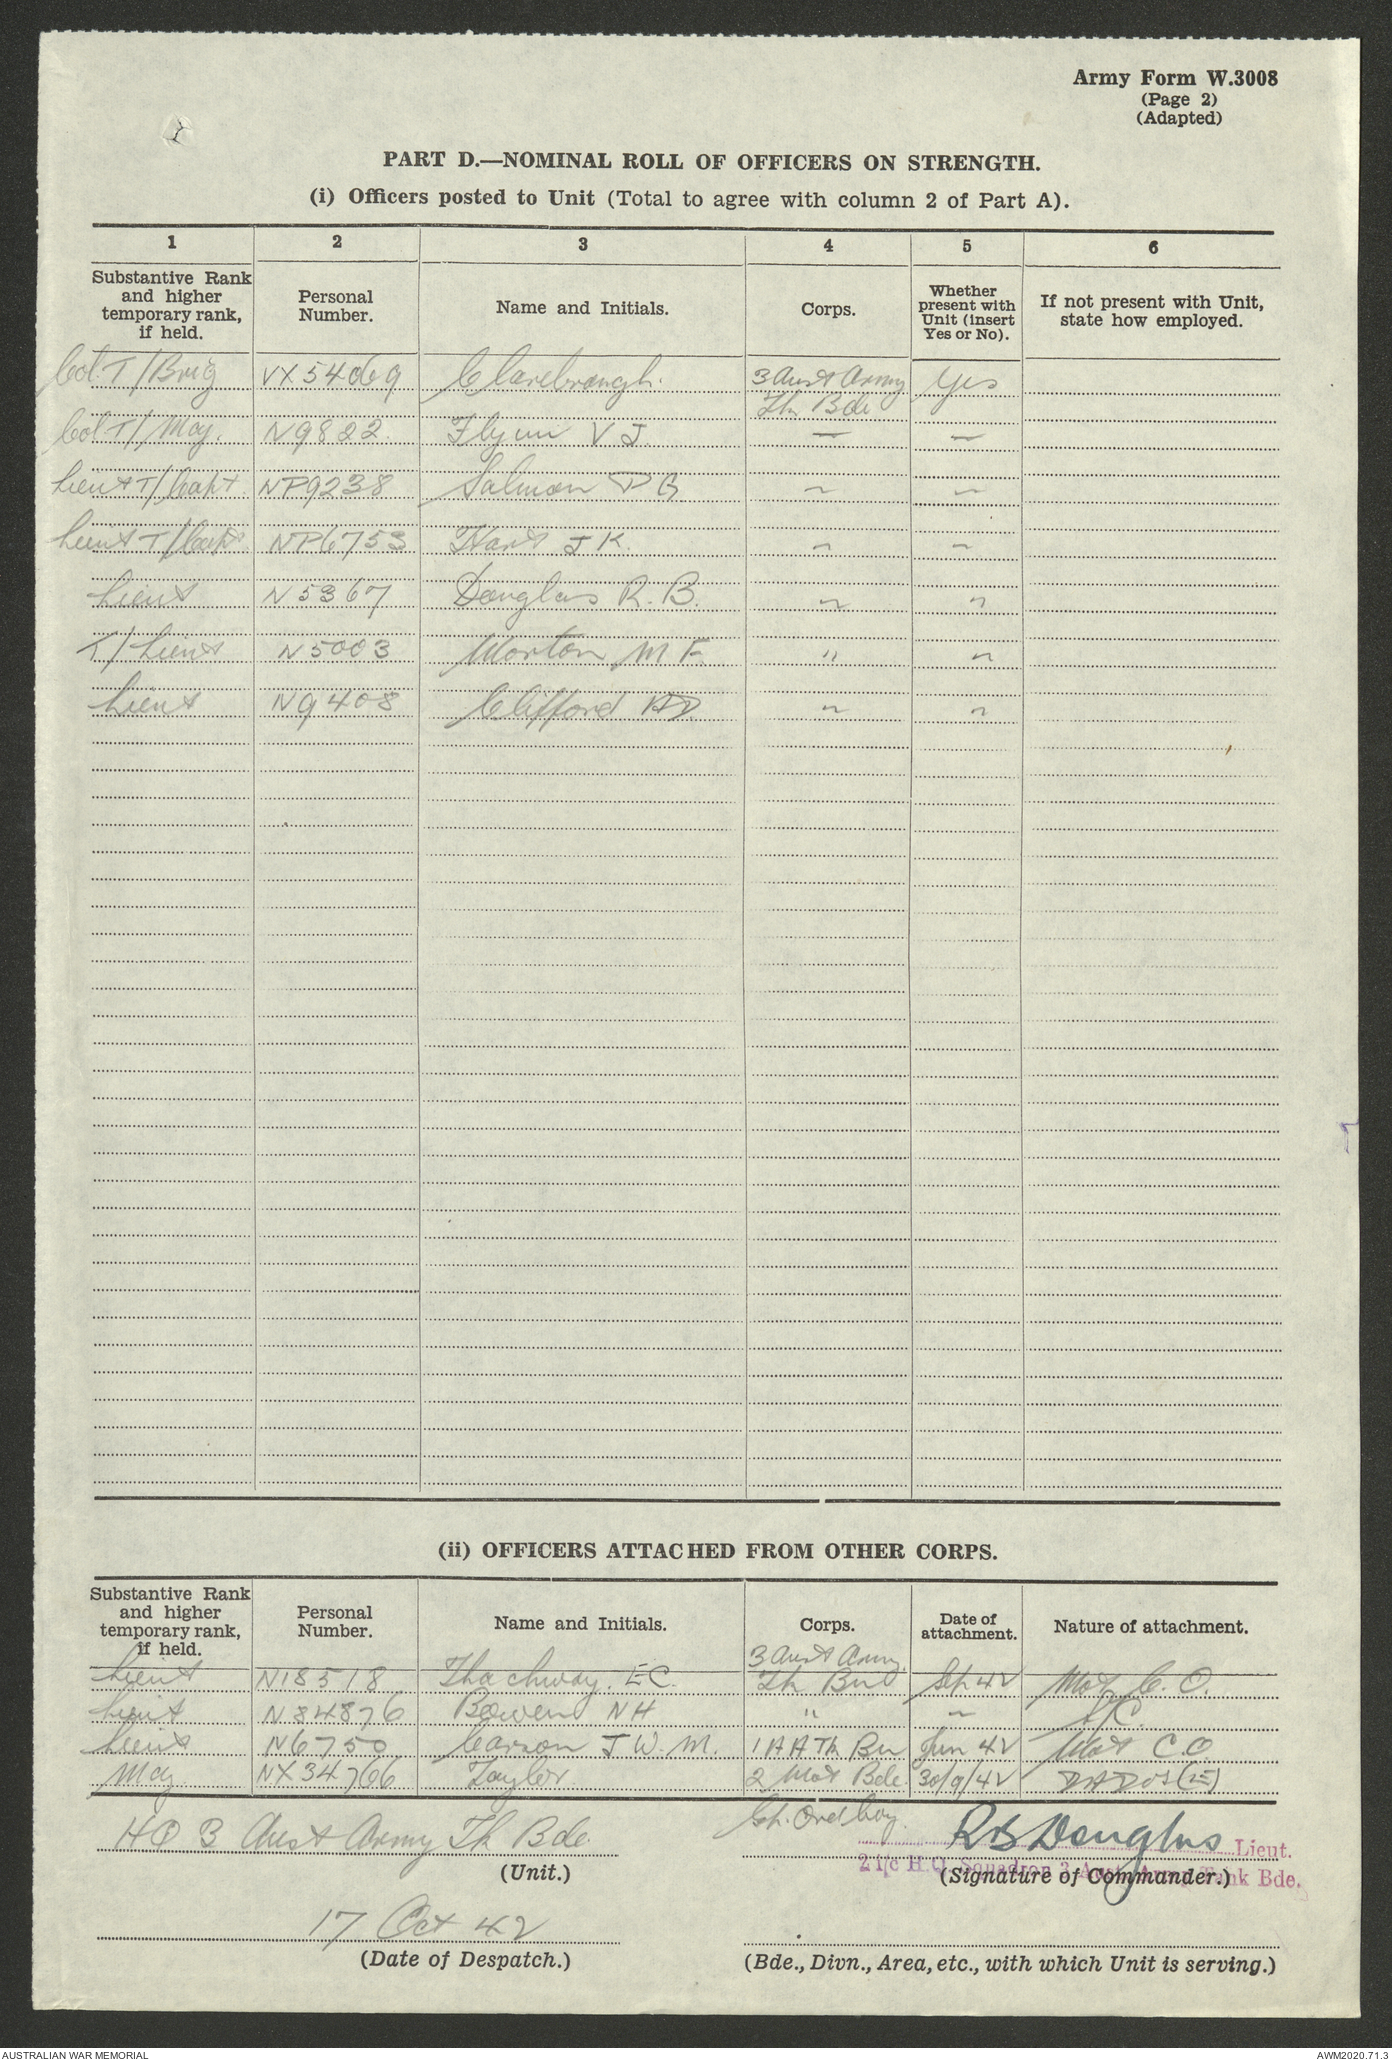 Army Form W.3008
(Page 2)
(Adapted)
PART D.—NOMINAL ROLL OF OFFICERS ON STRENGTH.
(i) Officers posted to Unit (Total to agree with column 2 of Part A).
1 2 3 4 5 6
Substantive Rank and higher temporary rank, if held. Personal Number. Name and Initials. Corps. Whether present with Unit (insert Yes or No). If not present with Unit, state how employed.
Col T/Brig VX54069 Clarebrough. 3 Aust Army Tk Bde Yes
Col T/Maj. N9822 Flynn V J. — —
Lieut T/Capt. NP9238 Salmon P G ~ ~
Lieut T/Capt. NP6753 Hart J K. ~ ~
Lieut N5367 Douglas R. B. ~ ~
T/Lieut N5003 Morton M F. " ~
Lieut N9408 Clifford AD. ~ ~
(ii) OFFICERS ATTACHED FROM OTHER CORPS.
Substantive Rank and higher temporary rank, if held. Personal Number. Name and Initials. Corps. Date of attachment. Nature of attachment.
Lieut N18518 Thackway. EC. 3 Aust Army. Tk Bn Sep 42 Mot C. O.
Lieut N84876 Bowen NH " ~ A/C.
Lieut N6750 Carson J W. M. 1 AA Tk Bn Jun 42 Mot C O
Maj. NX34766 Taylor 2 Mot Bde. 30/9/42 DADOS (E)
Ord Coy.
HQ 3 Aust Army Tk Bde.
(Unit.)
RB Douglas Lieut.
2 i/c H.Q. Squadron 3 Aust. Army Tank Bde.
(Signature of Commander.)
17 Oct 42
(Date of Despatch.)
(Bde., Divn., Area, etc., with which Unit is serving.)
AUSTRALIAN WAR MEMORIAL
AWM2020.71.3